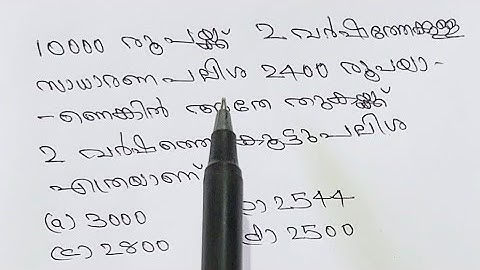 10000 രൂപയ്ക്ക് 2 വർഷത്തേക്കുള്ള
സാധാരണ പലിശ 2400 രൂപയാ-
-ണെങ്കിൽ തുകയ്ക്ക്
2 വർഷത്തെ കൂട്ടുപലിശ
എത്രയാണ്
(a) 3000 2544
(c) 2800 2500